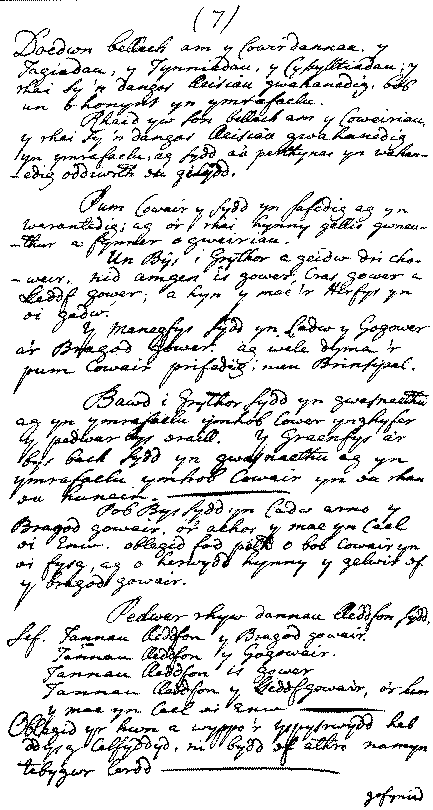 (7)
Doedwn bellach am y Cowerdannau, y
Tagiadau, y Tynniadau, y Cysylltiadau; y
rhai sy'n dangos lleisiau gwahanedig, bob
un o honynt yn ymrafaelu.
Rhaid yw son bellach am y Coweiriau,
y rhai sy'n dangos lleisiau gwahanedig
yn ymrafaelu, ag sydd a'u perthynas yn wahan-
-edig oddiwrth eu gilydd.
Pum Cowair y sydd yn safedig ag yn
warantedig; ag o'r rhai hynny gellir gwneu-
-thur a fynner o gweiriau.
Un Bŷs i Grythor a geidw dri cho-
-weir, nid amgen is gower, Cras gower a
Lleddf gower; a hyn y mae'r Hirfys yn
ei gadw.
Y Manegfys sydd yn Cadw y Gogower
a'r Bragod Gower. ag wele dyma'r
pum Cowair prifedig; neu Brinsipal.
Bawd i Grythor sydd yn gwasnaethu
ag yn ymrafaelu ymhob Cower ynghyfer
y pedwar bys eraill. Y Groenfys a'r
bys bach sydd yn gwasnaethu ag yn
ymrafaelu ymhob Cowair yn eu rhan
eu hunain.
Pob Bys sydd yn Cadw arno y
Bragod gowair, o'r achos y mae yn Cael
ei Enw. oblegid fod peth o bob Cowair yn
ei fysg, ag o herwydd hynny y gelwir ef
y bragod gowair.
Pedwar rhyw dannau lleddfon sydd,
Sef. Tannau lleddfon y Bragod gowair.
Tannau lleddfon y Gogowair.
Tannau lleddfon is gower
Tannau lleddfon y lleddf gowair, o'r hwn
y mae yn Cael ei enw
Oblegid yr hwn a wyppo'r yspysrwydd heb
ddysg Celfyddyd, ni bydd ef athro namyn
tebygwr Cerdd
gofynid